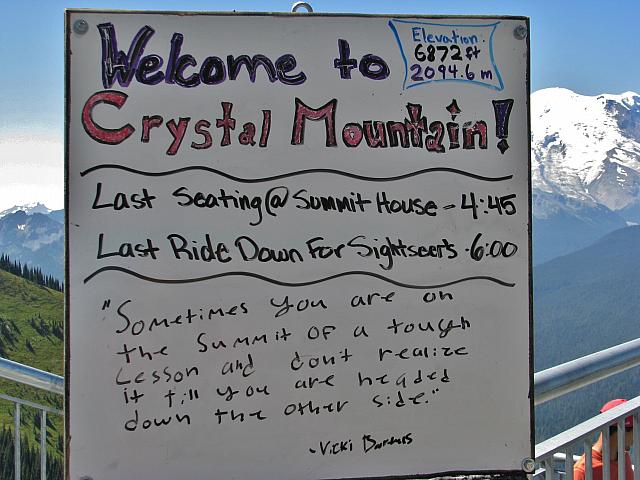 Welcome to
Elevation:
6872 ft
2094.6 m
Crystal Mountain!
Last Seating @ Summit House - 4:45
Last Ride Down For Sightseers - 6:00
"Sometimes you are on
the summit of a tough
Lesson and don't realize
it till you are headed
down the other side."
- Vicki